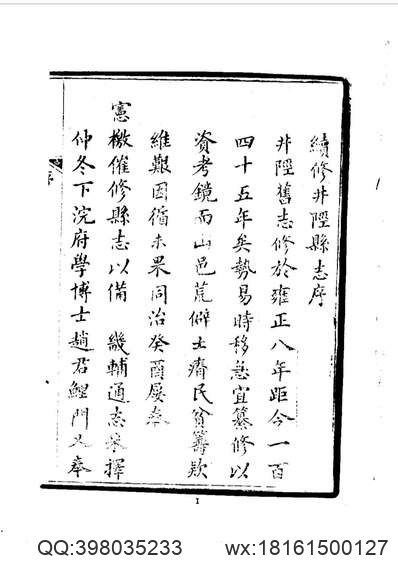 續修井陘縣志序
井陘舊志修於雍正八年距今一百
四十五年矣勢易時移急宜纂修以
資考鏡而山邑荒僻土瘠民貧籌款
維艱因循未果同治癸酉屡奉
憲檄催修縣志以備 畿輔通志采擇
仲冬下浣府學博士趙君鯉門又奉
序
1
QQ:398035233 wx:18161500127